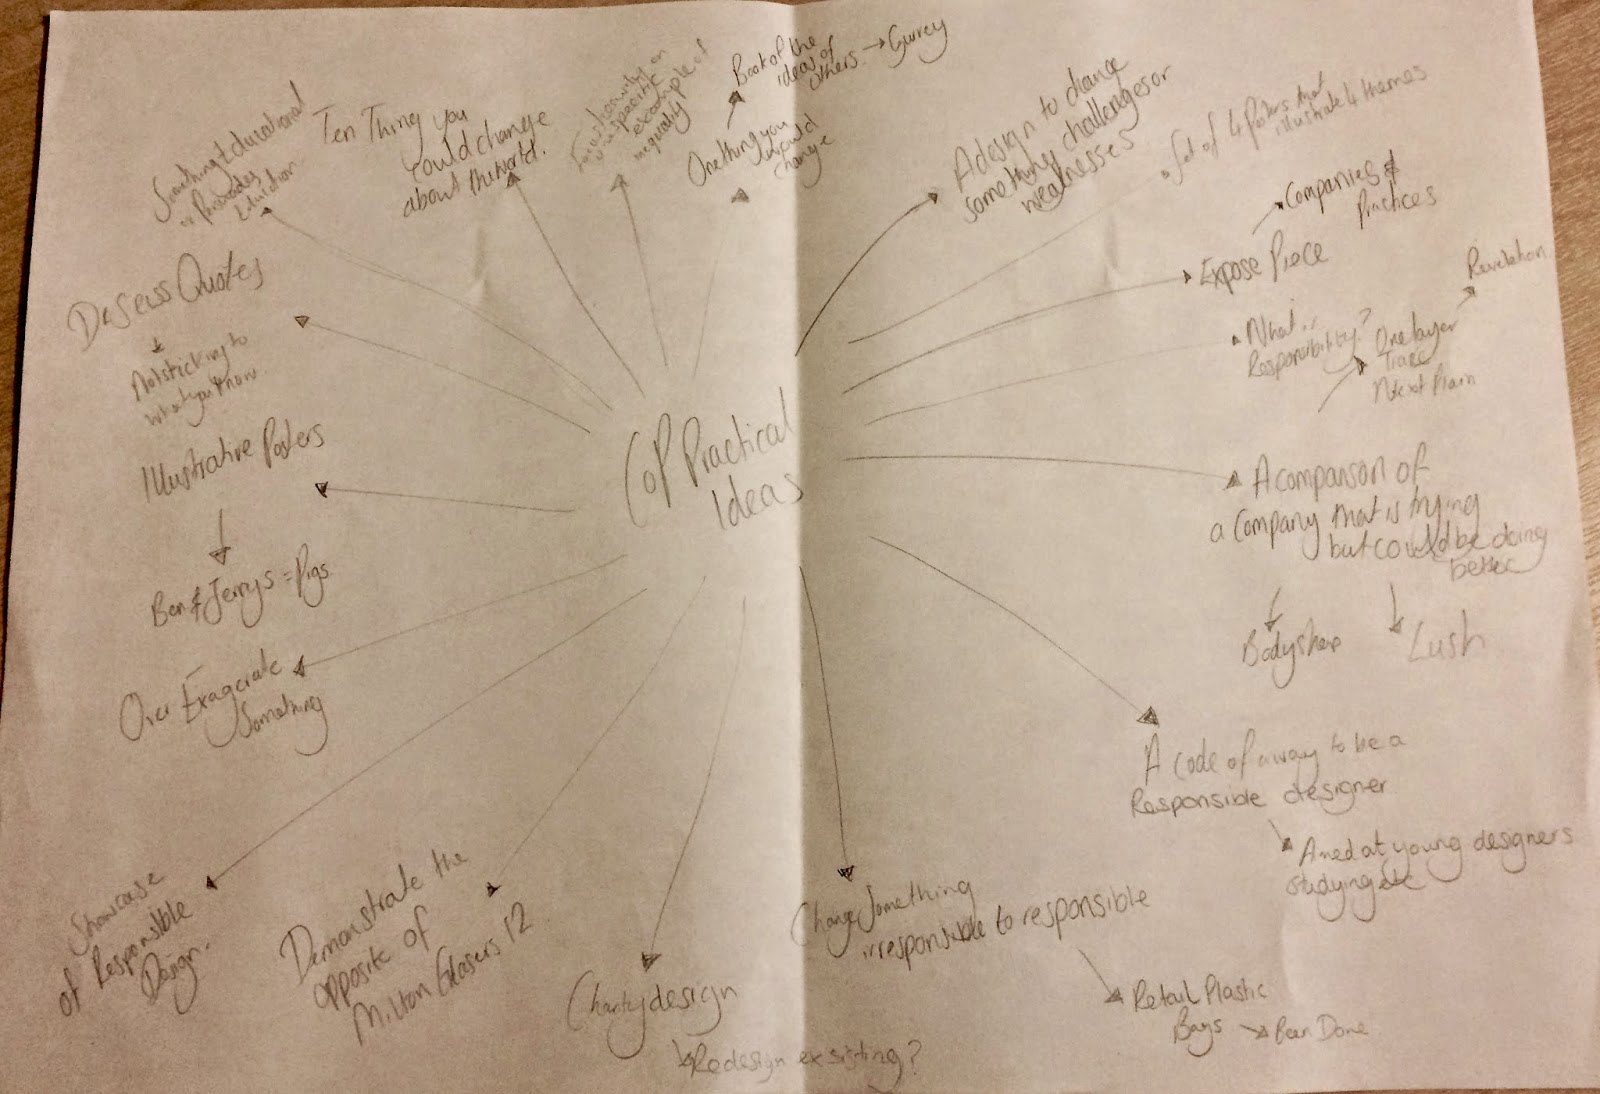 CoP Practical
Ideas
Something Educational
or Provides
Education
Ten Thing you
could change
about the world.
Focus on
specific
example of
inequality
One thing you
would
change
Book of the
ideas of
others. → Survey
A design to change
something challenges or
weaknesses
Set of 4 Posters that
illustrate 4 themes
Expose Piece
Companies &
Practices
What is
Responsibility?
One layer
Trace
Next Plain
Revelation
A comparison of
a company that is trying
but could be doing
better
Bodyshop
Lush
A code of a way to be a
Responsible designer
Aimed at young designers
studying etc
Change Something
irresponsible to responsible
Retail Plastic
Bags → Been Done
Charity design
Redesign exsisting?
Demonstrate the
opposite of
Milton Glasers 12
Showcase
of Responsible
Design.
Over Exagerate
Something
Illustrative Posters
Ben & Jerrys = Pigs
Quotes
Not sticking to
what you know.